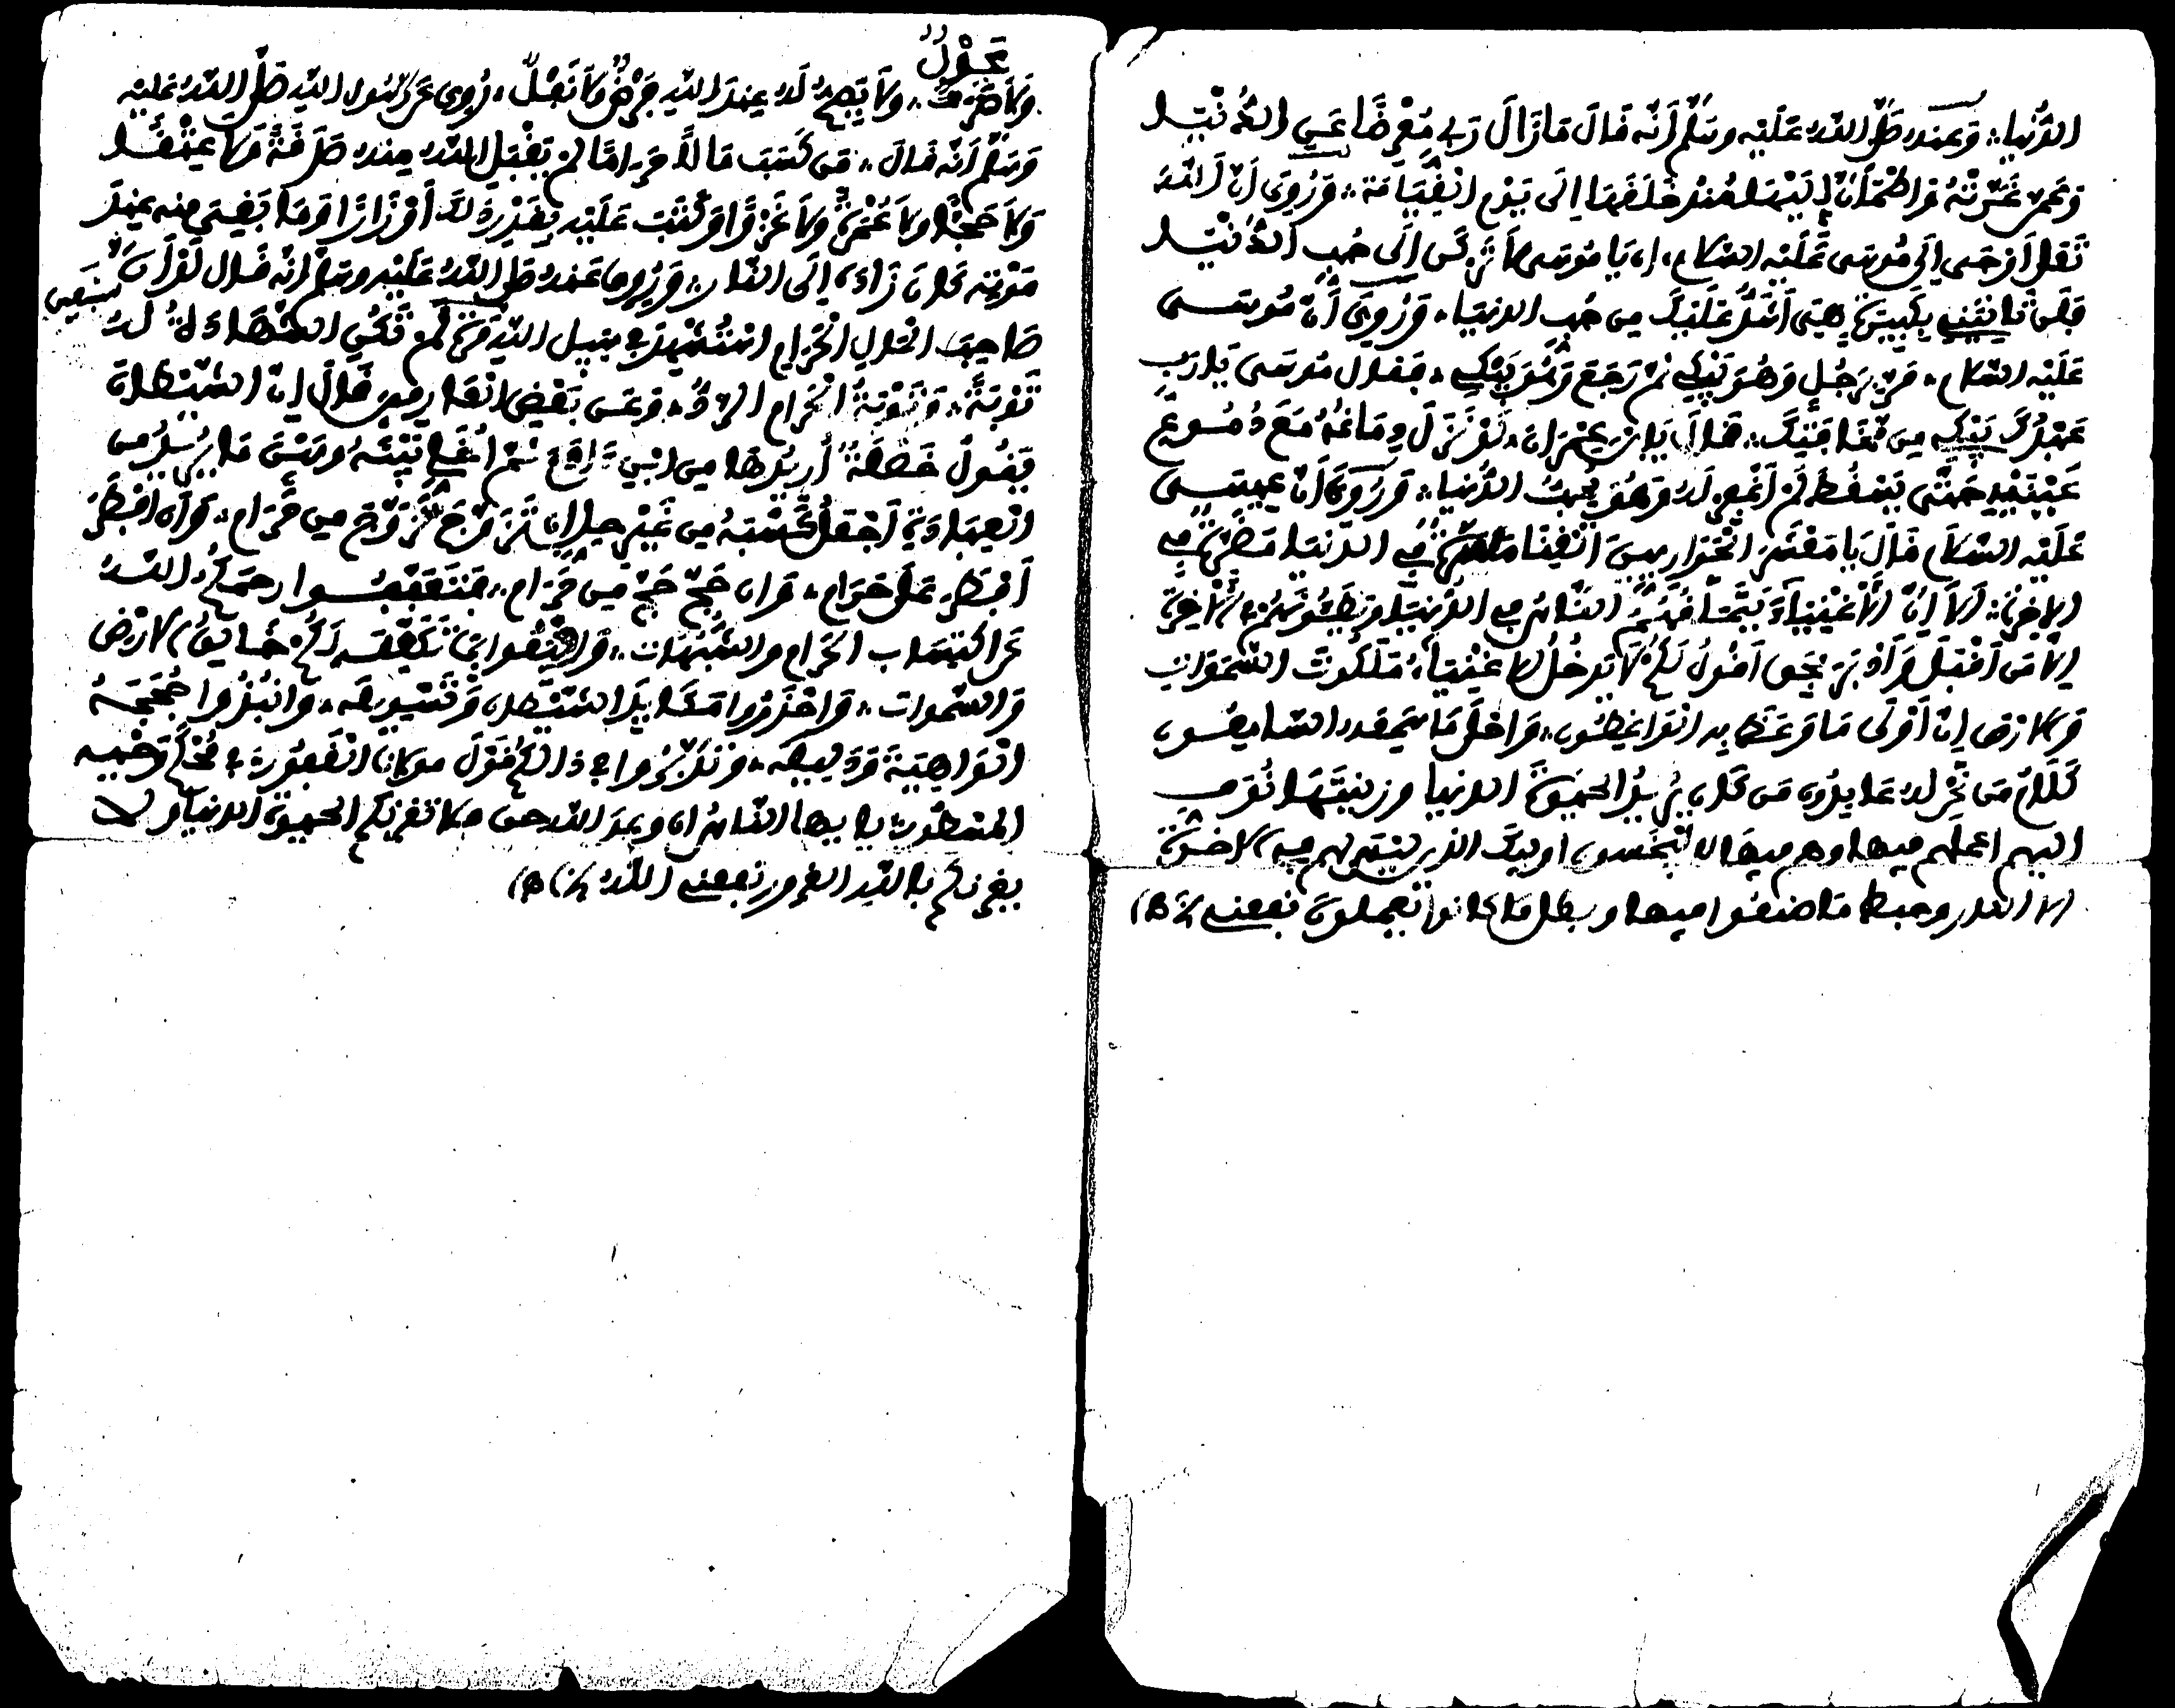 الدُّنيا وَعنه صَلَّى اللَّهُ عَلَيْه وسَلَّم أَنَّه قالَ مَا زَالَ رَبِّي مُعْرِضًا عَنِ الدُّنْيَا
وَعَمَّن غَرَّتْهُ وَاطْمَأَنَّ إِلَيْهَا مُنْذُ خَلَقَهَا إِلَى يَوْمِ الْقِيَامَة وَرُوِيَ أَنَّ اللَّهَ
تَعَالى أَوْحَى إِلَى مُوسَى عَلَيْه السَّلام يَا مُوسَى لَا تَرْكَن إِلَى حُبِّ الدُّنْيَا
فَلَن تَأْتِيَنِي بِكَبِيرَةٍ هِيَ أَشَدُّ عَلَيْكَ مِن حُبِّ الدنيَا وَرُوِيَ أَنَّ مُوسَى
عَلَيْه السَّلام مَرَّ بِرَجُلٍ وَهُوَ يَبْكِي ثُمَّ رَجَعَ وَهُوَ يَبْكِي فَقالَ مُوسَى يَا رَبِّ
عَبْدُكَ يَبْكِي مِن مَخَافَتِكَ قَالَ يَا بْنَ عِمْرَانَ لَوْ نَزَلَ دِمَاغُهُ مَعَ دُمُوعِ
عَيْنَيْهِ حَتَّى يَسْقُطَ لَم أَغْفِر لَهُ وَهُوَ يُحِبُّ الدُّنيا وَرُوِيَ أَنَّ عِيسَى
عَلَيْه السَّلام قَالَ يَا مَعْشَرَ الْحَوَارِيِّينَ الْغِنَا مَسَرَّةٌ فِي الدنيَا مَضَرَّةٌ فِي
الاخِرَة أَلَا إِنَّ الْأَغْنِيَاءَ
إِلَّا مَن أَقْبَلَ وَأَدْبَرَ بِحَق أَقُولُ لَكُم لَا يَدْخُلُ الاغْنِيَاءُ مَلَكُوتَ السَّمَوَاتِ
وَالارْض إِنَّ أَوْلَى مَا وَعَظَ بِهِ الْوَاعِظُونَ وَأَحْلَى مَا سَمِعَه السَّامِعُون
كَلَامُ مَن عَزَّ لَهُ عَابِدُون مَن كَانَ يُرِيدُ الحَيَوةَ الدنيا وزينَتَهَا نُوَفِّ
اليهم أعملهم فيها وهم فيها لا يُبْخَسون أوليك الذين ليس لهم في الاخرة
إلا النار وحبط مَا صَنَعُوا فيها وبطل مَا كانوا يَعملون نفعني
عَدْلٌ
وَلَا صَرْفٌ وَلَا يَصِحُّ لَهُ عِندَ اللَّهِ فَرْضٌ وَلَا نَفْلٌ رُوِيَ عَن رَسُول اللَّهِ صَلَّى اللَّهُ عَلَيْه
وَسَلَّم أَنَّه قالَ مَن كَسَبَ مَالًا حَرَامًا لَم يَقْبَلِ اللَّهُ مِنه صَدَقَةً وَلَا عِتْقًا
وَلَا حَجًّا وَلَا عُمْرَةً وَلَا غَزْوًا وَكَتَبَ عَلَيْه بِقَدْرِ ذَلكَ أَوْزَارًا وَمَا بَقِيَ مِنه عِندَ
مَوْتِه كَانَ زَادَهُ إِلَى النَّار وَرُوِي عَنه صَلَّى اللَّهُ عَلَيْه وسَلَّم أَنَّه قَال لَوْ أَنَّ
صَاحِبَ الْمَالِ الْحَرَامِ اسْتُشْهِدَ فِي سَبِيل اللَّهِ سَبْعِين مَرَّةً لَم تَكُنِ الشَّهَادَةُ لَهُ
تَوْبَةً وَتَوْبَةُ الْحَرَامِ الرَّدُّ وَعَن بَعْضِ الْعَارِفِين قَالَ إِنَّ الشَّيْطَانَ
يَقُولُ خَصْلَةٌ أُرِيدُهَا مِن ابْنِ ءَادَمَ ثُمَّ أُخَلِّي بَيْنَهُ وَبَيْنَ مَا يُرِيدُ مِن
الْعِبَادَةِ أَجْعَلُ كَسْبَهُ مِن غَيْرِ حِلٍّ إِن تَزَوَّجَ تَزَوَّجَ مِن حَرَام وَإِن أَفْطَرَ
أَفْطَر عَلَى حَرَامٍ وَإِن حَجَّ حَجَّ مِن حَرَام فَتَعَفَّفُوا رحمَكُم اللَّهُ
عَن اكْتِسَاب الحَرَام والشُّبُهَات
وَالسَّمَوات وَاحْذَرُوا مَكَايِدَ الشَّيْطَان وَتَسْوِيلَه وَانْبُذُوا حُجَجَهُ
الْوَاهِيَةَ وَدَلِيلَه وَتَدَبَّرُوا فِي ذَالِكُم قَوْلَ مولانا الْغَفُور فِي مُحْكَم وَحْيِه
المسطور يا ايها النّاس إن وعدَ اللَّه حق فلا تغرنكم الحيوة الدنيا ولا
يغرنكم بِاللَّهِ الغرور نفعني اللَّهُ